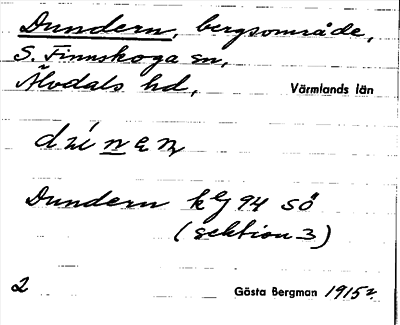 Dundern, bergsområde,
S. Finnskoga sn,
Älvdals hd,
Värmlands län
Dundern kg 94 sö
(sektion 3)
2
Gösta Bergman 1915